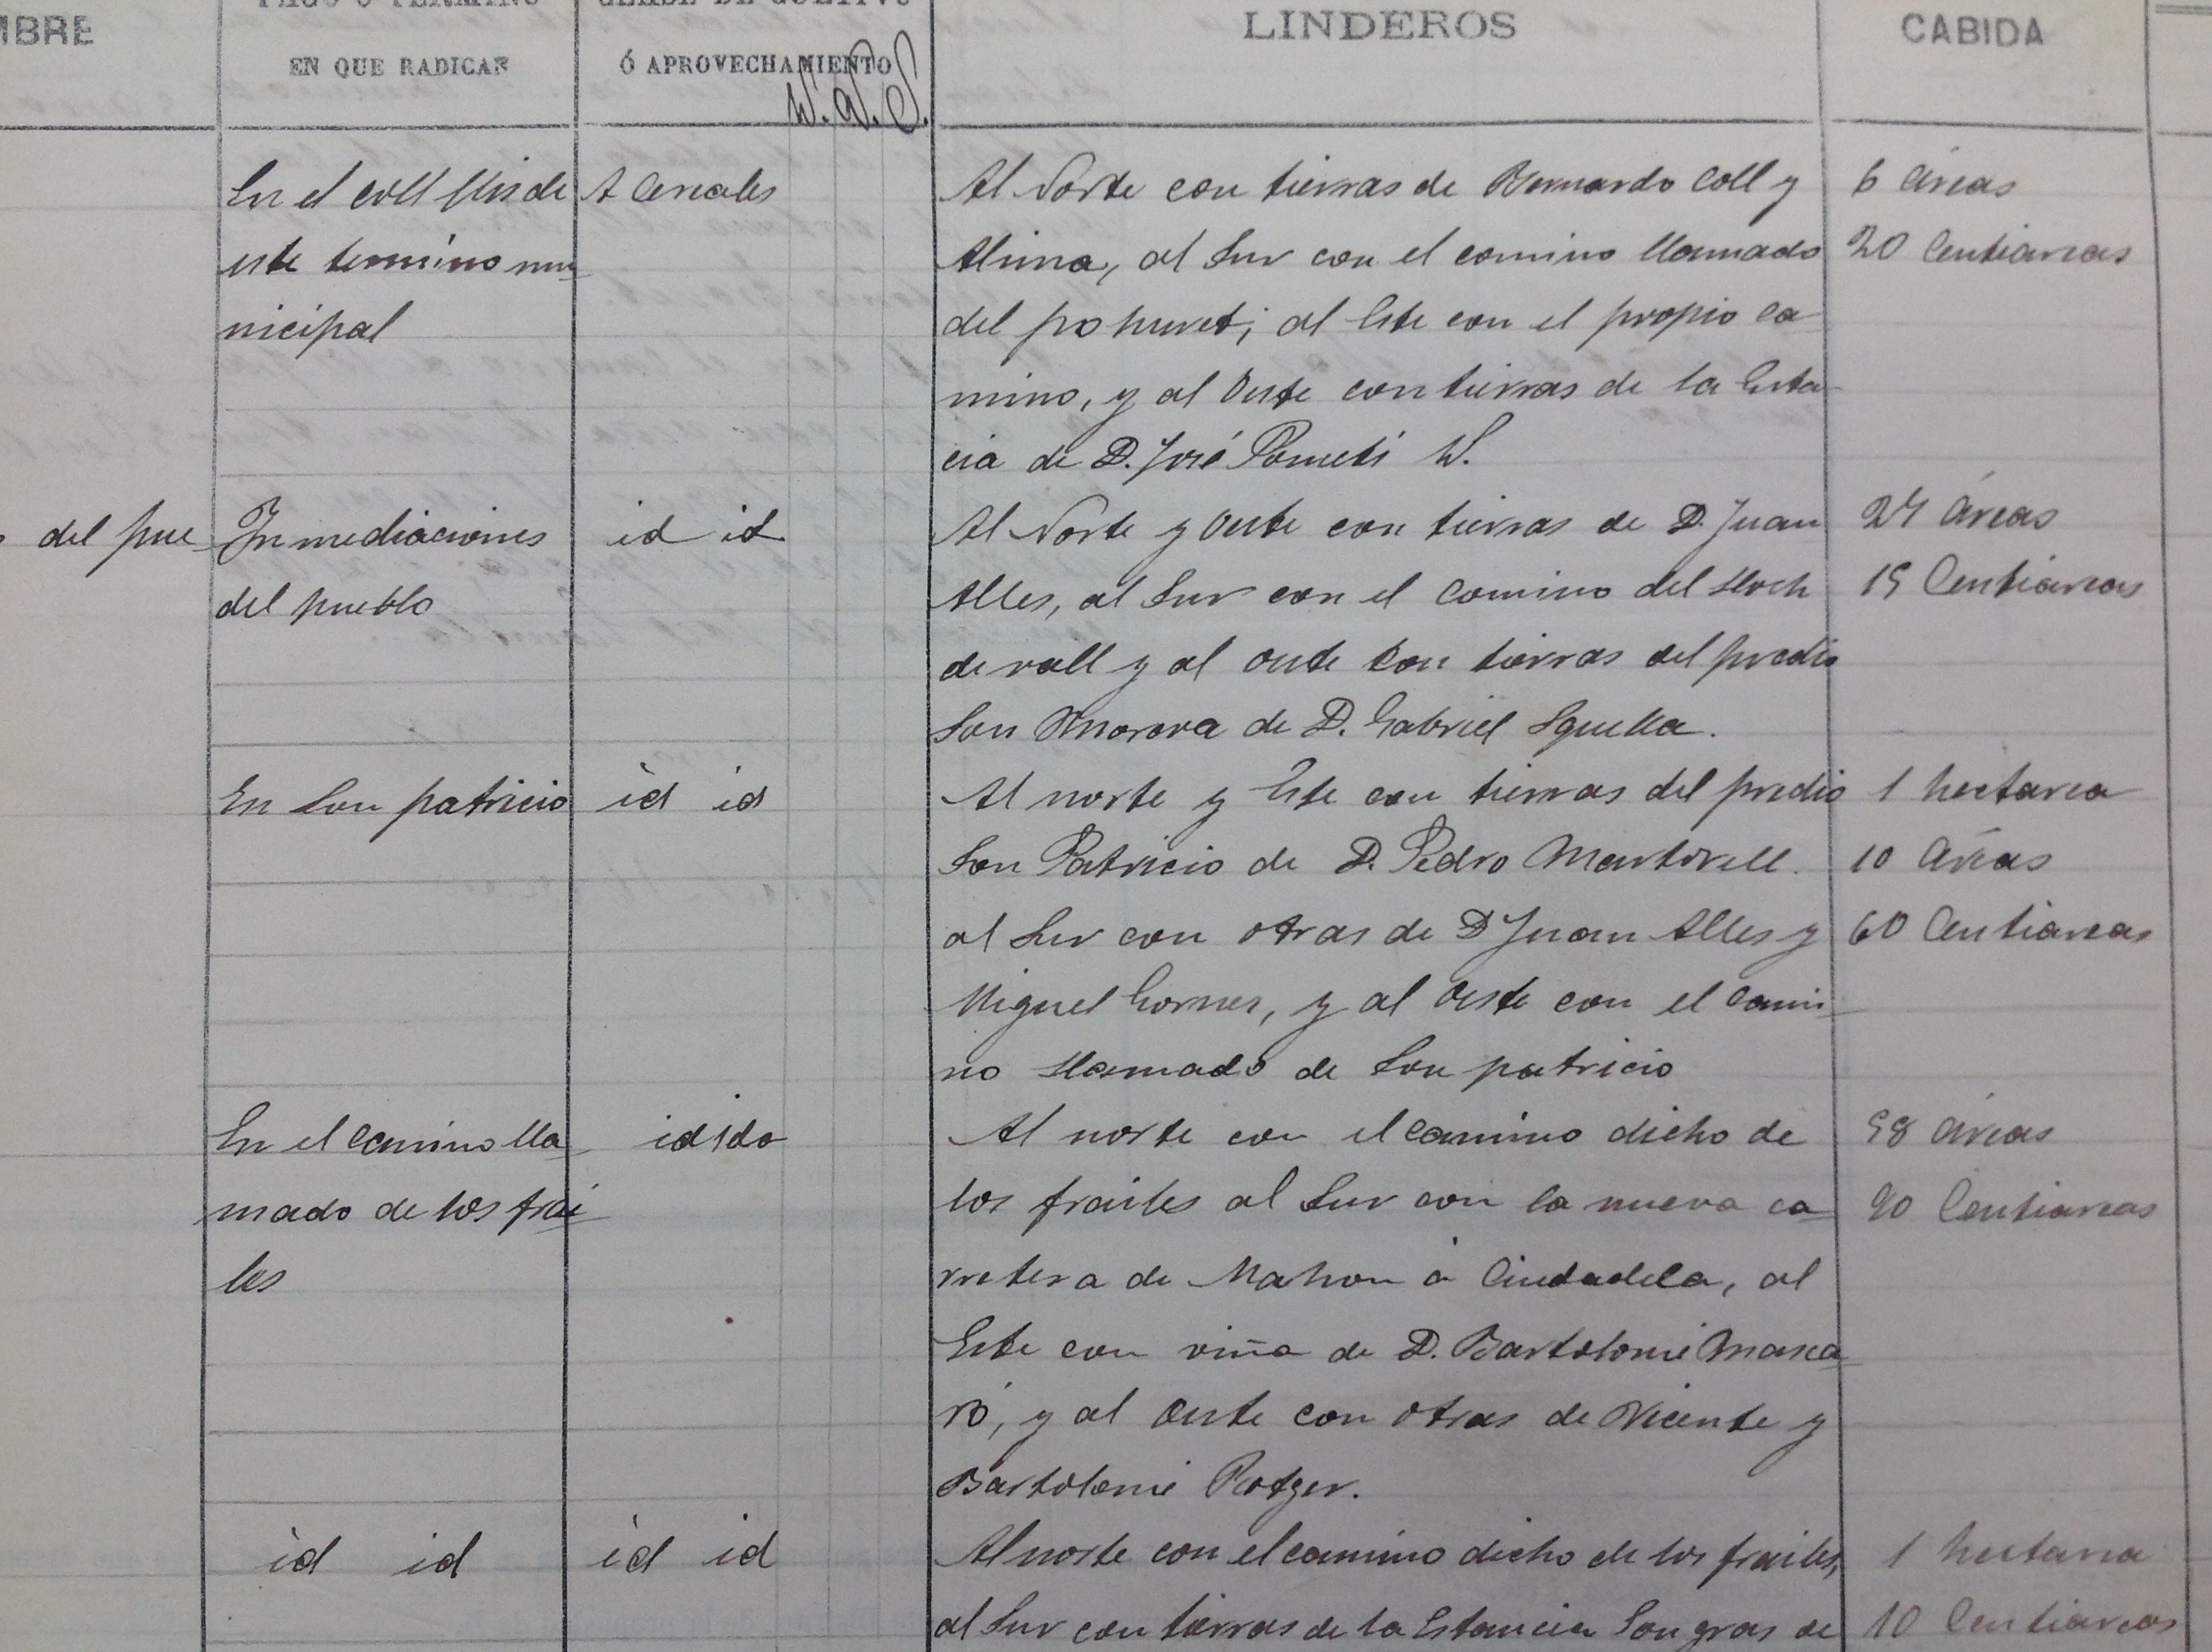 MBRE
PAGO Ó TÉRMINO
EN QUE RADICAN
CLASE DE CULTIVO
Ó APROVECHAMIENTO
LINDEROS
CABIDA
En el coll de
este termino mu
nicipal
A Cereales
Al Norte con tierras de Bernardo Coll y
Alsina, al Sur con el camino llamado
del al Este con el propio ca
mino, y al Oeste con tierras de la Esta
cia de D. José
6 áreas
20 Centiareas
del pue
Inmediaciones
del pueblo
id id
Al Norte y Oeste con tierras de D. Juan
Alles, al Sur con el Camino del
de vall y al Oeste con tierras del predio
Son Morora de D. Gabriel Squella.
24 áreas
15 Centiareas
En Son patricio
id id
Al norte y Este con tierras del predio
Son Patricio de D. Pedro Martorell.
al Sur con otras de D Juan Alles y
Miguel Gornes, y al Oeste con el Cami
no llamado de Son patricio
1 hectarea
10 áreas
60 Centiareas
En el Camino lla
mado de los frai
les
id ido
Al norte con el Camino dicho de
los frailes al Sur con la nueva ca
rretera de Mahon á Ciudadela, al
Este con viña de D. Bartolomé Masca
ró, y al Oeste con otras de Vicente y
Bartolomé Rotger.
98 áreas
90 Centiareas
id id
id id
Al norte con el camino dicho de los frailes,
al Sur con tierras de la Estancia Son gras de
1 hectarea
10 Centiareas